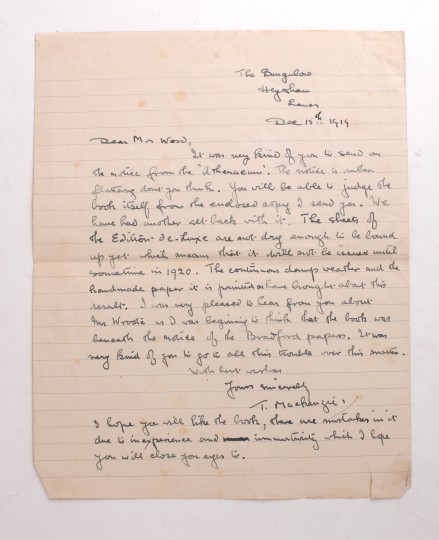 The Bungalow
Heysham
Lancs
Dec 15th 1919
Dear Mrs Wood,
It was very kind of you to send on
the notice from the "Athenaeum". The notice is rather
flattering dont you think. You will be able to judge the
book itself from the enclosed copy I send you. We
have had another set back with it. The sheets of
the Edition-de-Luxe are not dry enough to be bound
up yet which means that it will not be issued until
sometime in 1920. The continuous damp weather and the
handmade paper it is printed on have brought about this
result. I was very pleased to hear from you about
Mr Wood's as I was beginning to think that the book was
beneath the notice of the Bradford papers. It was
very kind of you to go to all this trouble over this matter.
With best wishes
Yours sincerely
T. Mackenzie.
I hope you will like the book, there are mistakes in it
due to inexperience and immaturity which I hope
you will close you eyes to.